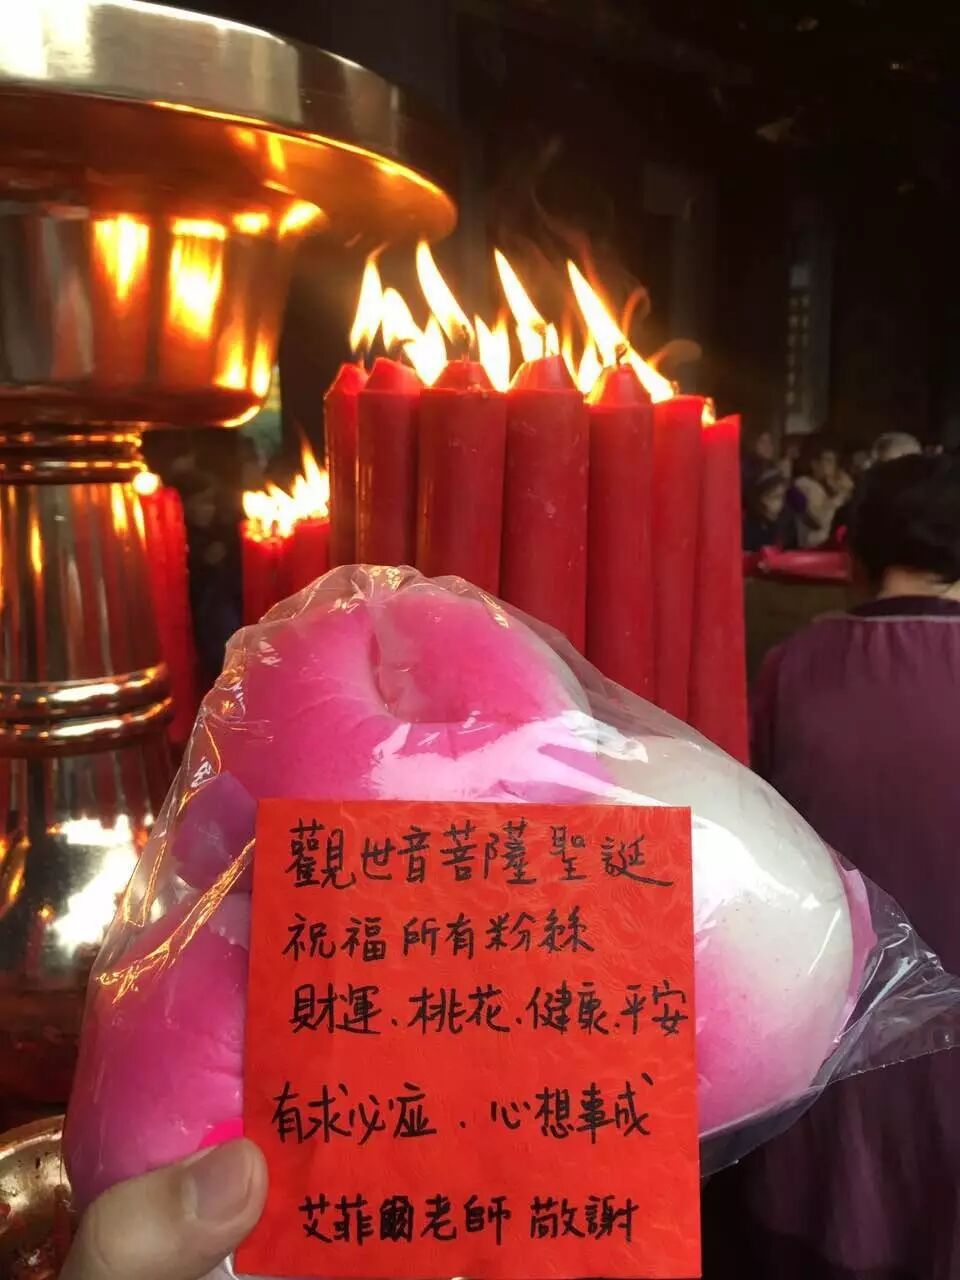 觀世音菩薩聖誕
祝福所有粉絲
財運、桃花、健康、平安
有求必应、心想事成
艾菲爾老師 敬謝